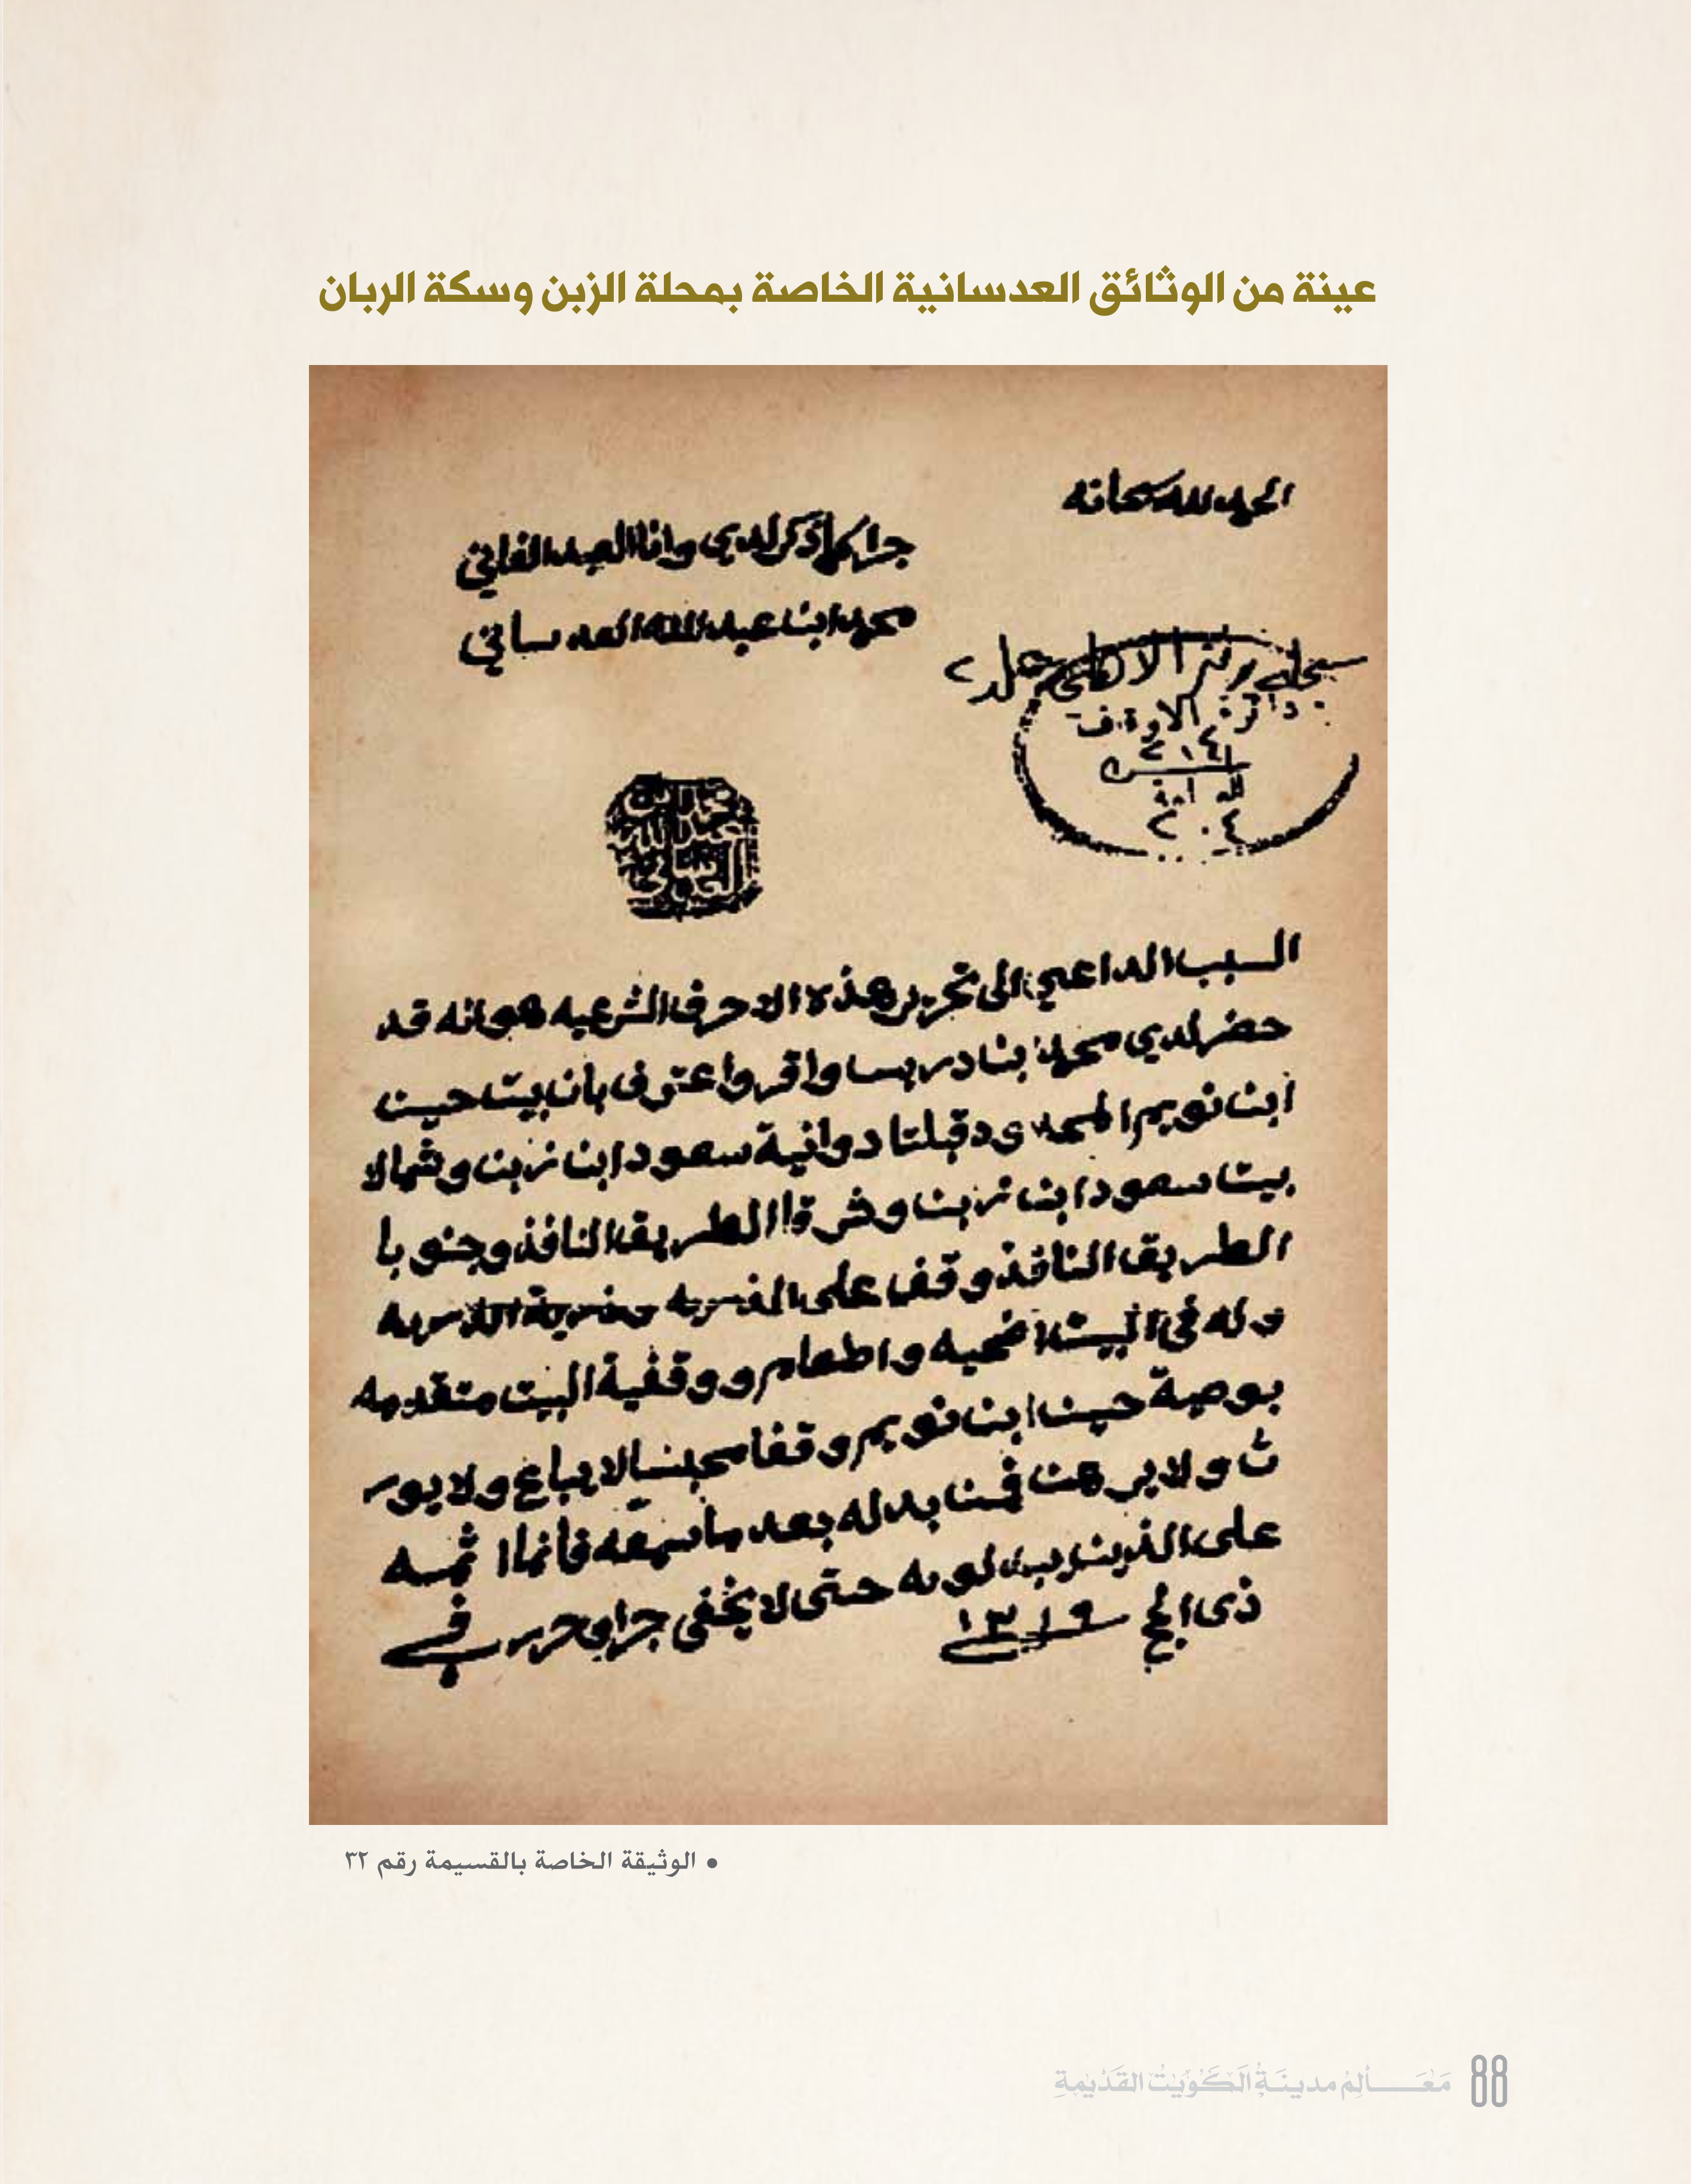 عينة من الوثائق العدسانية الخاصة بمحلة الزبن وسكة الربان
الحمد لله سبحانه
جرا كما ذكر لدي وانا العبد الفاني
محمد ابن عبد الله العدساني
دائرة الاوقاف
٢٠٤
السبب الداعي الى تحرير هذه الاحرف الشرعيه هو انه قد
حضر لدي محمد بن ادريس واقر واعترف بان بيت حسين
ابن نويم المحدود قبلتا دوانية سعود ابن زبن وشمالا
بيت سعود ابن زبن وشرقا الطريق النافذ وجنوبا
الطريق النافذ وقفا على الذريه وذرية الذريه
وله في البيت اضحيه واطعام ووقفية البيت متقدمه
بوصية حسين ابن نويم وقفا محبسا لا يباع ولا يور
ث ولا يرهن فمن بدله بعد ما سمعه فأنما اثمه
على الذين يبدلونه حتى لا يخفى جرا وحرر في
ذي الحج ١٣١٩
• الوثيقة الخاصة بالقسيمة رقم ٣٢
مَعَـــالِمُ مدينَةِ الْكُوَيْتِ القَدْيمَةِ 88